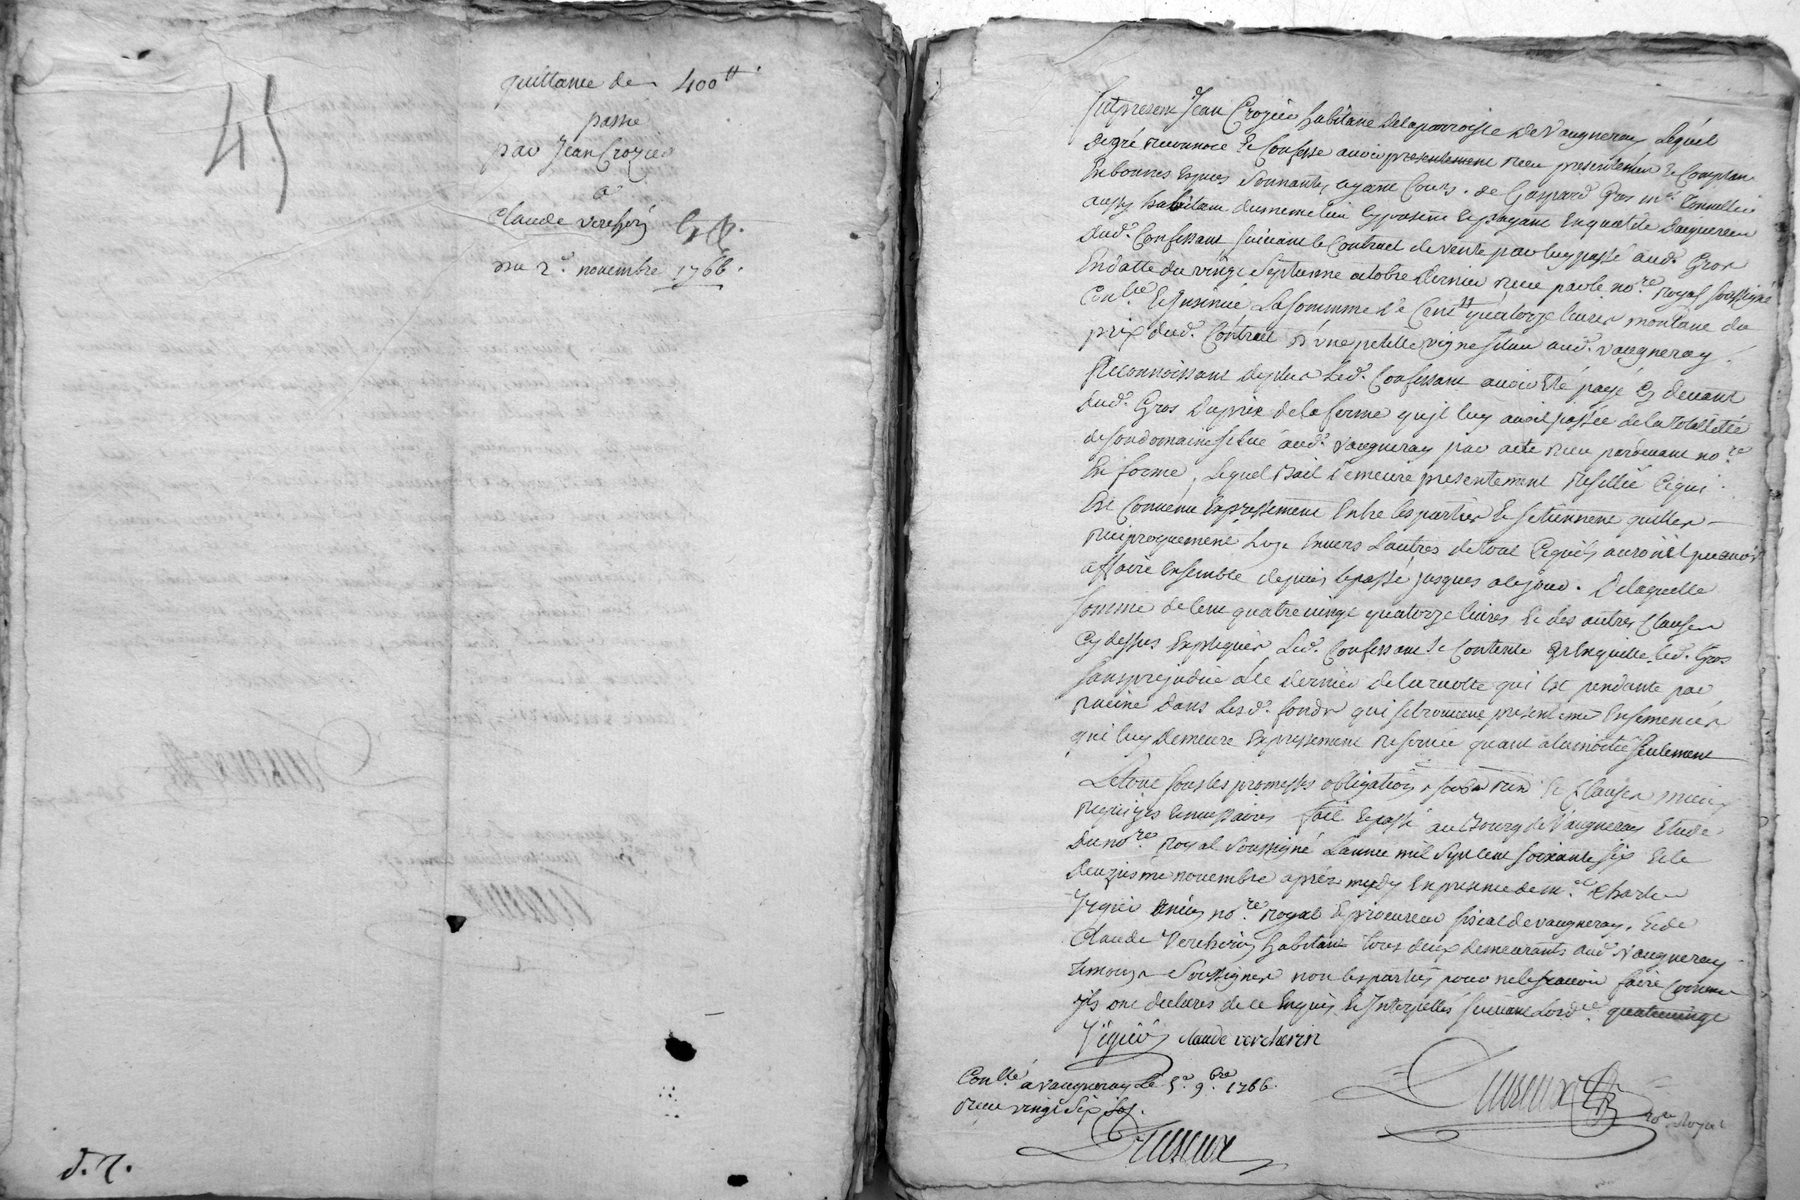 45
quittance de 400tt
passée
par Jean Crozier
a
Claude vercherin
du 2e. novembre 1766.
d. r.
fut present Jean Crozier habitant de la parroisse de Vaugneray Lequel
de gré reconnoit et Confesse avoir presentement receu presentement et Comptant
En bonnes Especes Sonnantes ayant Cours. de Gaspard Gros me. Tonnellier
aussy habitant du meme lieu Exposant et payant En qualité d'acquereur
dud. Confessant suivant le Contract de vente par luy passé aud. Gros
En datte du vingt Sept anne octobre dernier receu par le nore. royal soussigné
Conlle. Et Insinué, La somme de Centtt quatorze livres montant du
prix dud. Contract d'une petitte vigne situu aud. vaugneray.
Reconnoissant de plus Led. Confessant avoir Eté payé Cy devant
dud. Gros du prix de la ferme qu'jl luy avoit passée de la totallitté
de son domaine situé aud. vaugneray par acte receu pardevant nore.
En forme, Lequel Bail demeure presentement Resillié Ce qui
Est Convenu Expressement Entre les parties Et se tiennent quittes
reciproquement L'un Envers L'autres de tout Ce qu'ils auroint pu avoir
affaire Ensemble depuis le passé jusques a ce jour. De laquelle
somme de Cent quatrevingt quatorze livres Et des autres Clauses
Cy dessus Expliquées Led. Confessant Se Contente Et En quitte led. Gros
sans prejudice a Le dernier de la recolte qui Est pendante par
racine dans Lesd. fonds qui se trouvent presentement Ensemencés
qui luy demeure Expressement reservée quant a la moitié seulement
Le tout sous les promesses obligations soumn. ren. Et Clauses
requizes Et necessaires fait Et passé au Bourg de Vaugneray Etude
du nore. Royal Soussigné L'année mil Sept Cent soixante six Et le
deuzieme novembre aprés mydy En presence de me. Charles
Vigier ancien nore. royal Et procureur fiscal de vaugneray. Et de
Claude Vercherin habitant tous deux demeurants aud. Vaugneray
temoins Soussignes non les parties pour ne le scavoir faire Comme
jls ont declarés de ce Enquis Et Interpellés suivant Lordce. quatrevingt
Vigier claude vercherin
Conllé. a vaugneray Le 5e. 9bre. 1766.
receu vingt Six sols.
Dureux
Dureux
nore. Royal